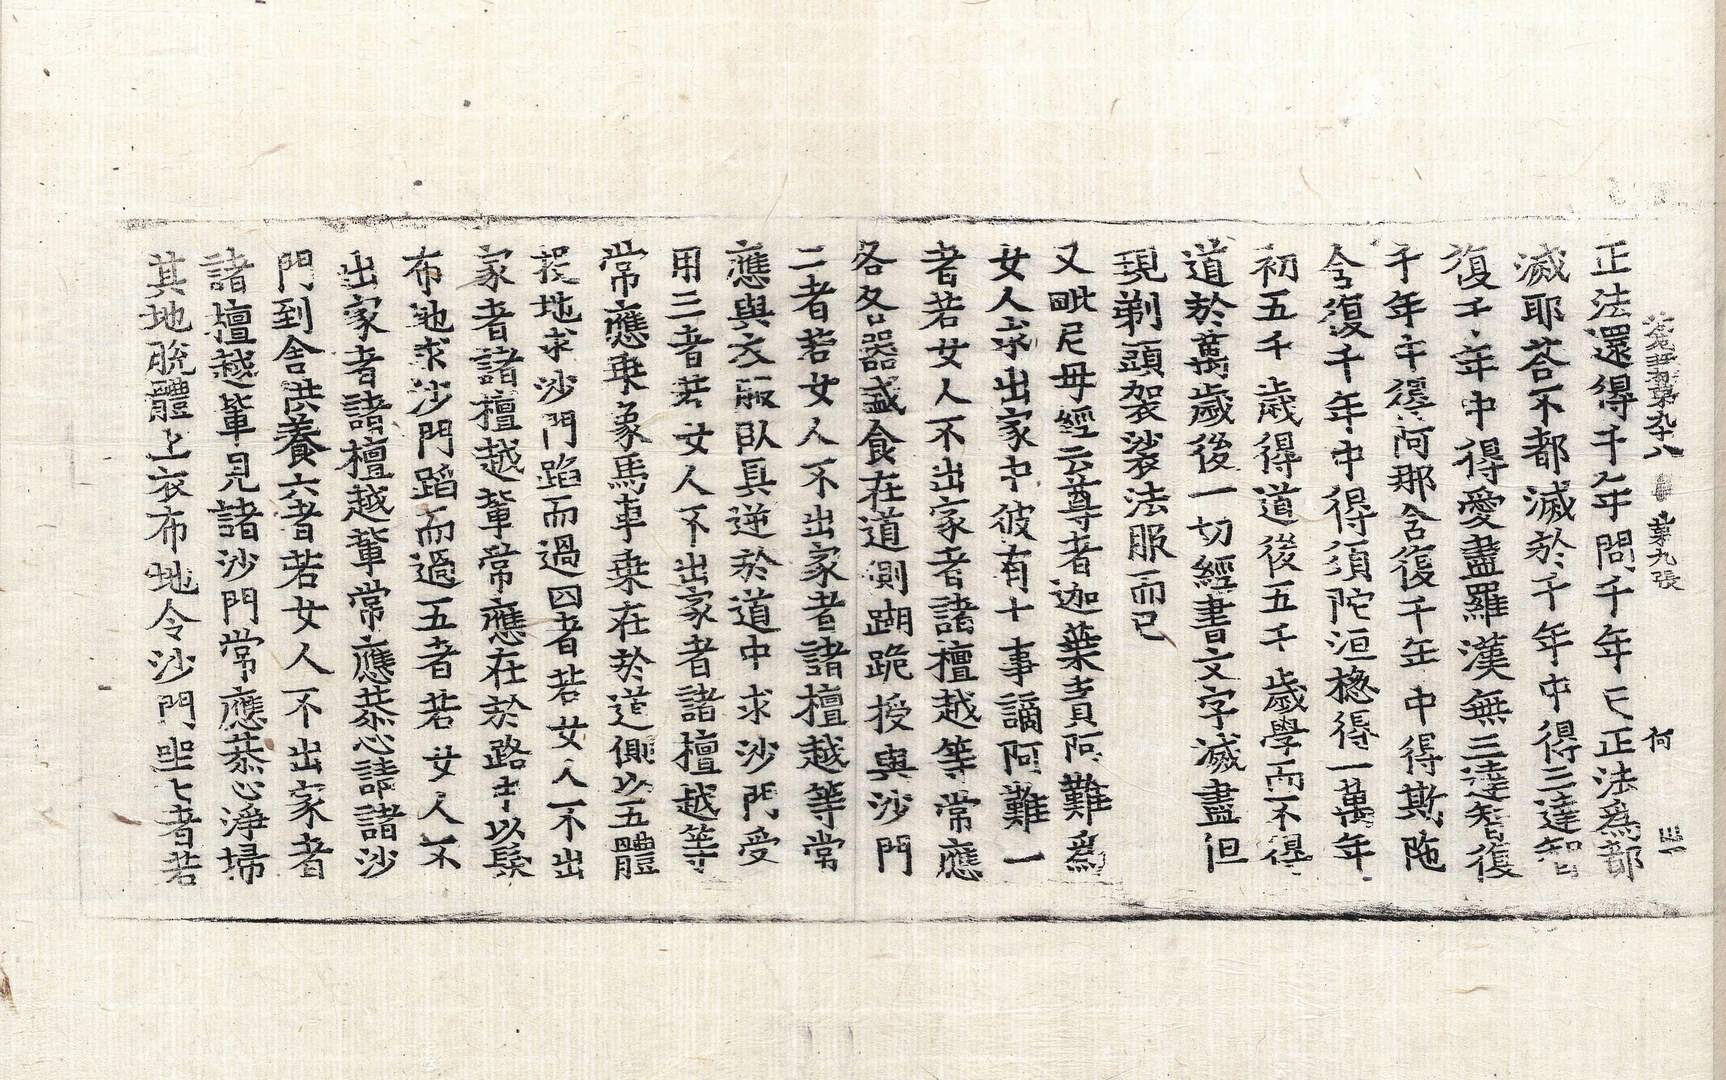 正法還得千年問千年已正法爲都
滅耶荅不都滅於千年中得三達智
復千年中得愛盡羅漢無三達智復
千年中得阿那含復千年中得斯陁
含復千年中得須陀洹捴得一萬年
初五千歲得道後五千歲學而不得
道於萬歲後一切經書文字滅盡但
現剃頭袈裟法服而已
又毗尼母經云尊者迦葉責阿難爲
女人求出家中彼有十事謫阿難一
者若女人不出家者諸檀越等常應
各各器盛食在道側䠒跪授與沙門
二者若女人不出家者諸檀越等常
應與衣服臥具逆於道中求沙門受
用三者若女人不出家者諸檀越等
常應乗象馬車乗在於道側以五體
投地求沙門蹈而過四者若女人不出
家者諸檀越輩常應在於路中以髮
布地求沙門蹈而過五者若女人不
出家者諸檀越輩常應恭心請諸沙
門到舍供養六者若女人不出家者
諸檀越輩見諸沙門常應恭心淨掃
其地脫體上衣布地令沙門坐七者若
第九十八 第九張 何